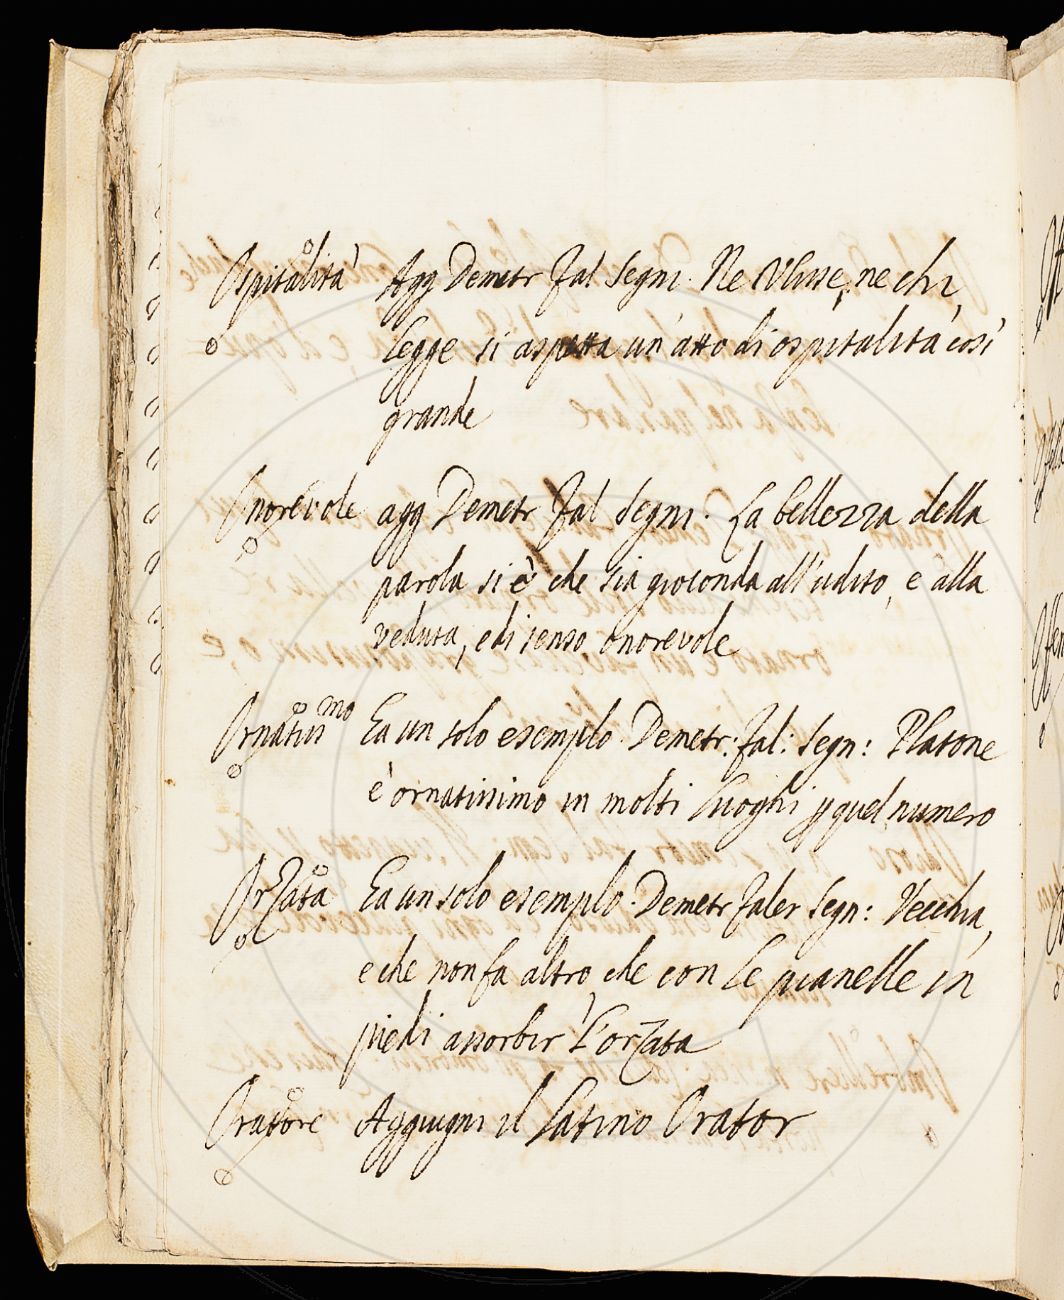 Ospitalità Agg Demetr Fal Segni. Ne Ulisse, ne chi
legge si aspetta un' atto di ospitalità così
grande
Onorevole agg Demetr Fal Segni. La bellezza della
parola si è che sia gioconda all' udito, e alla
veduta, e di senso onorevole
Ornatiss.mo Ha un solo esemplo. Demetr: Fal: Segn: Platone
è ornatissimo in molti luoghi p quel numero
Orzata Ha un solo esemplo. Demetr Faler Segn: Vecchia,
e che non fa altro, che con le pianelle in
piedi assorbir l'orzata
Oratore Aggiugni il latino Orator